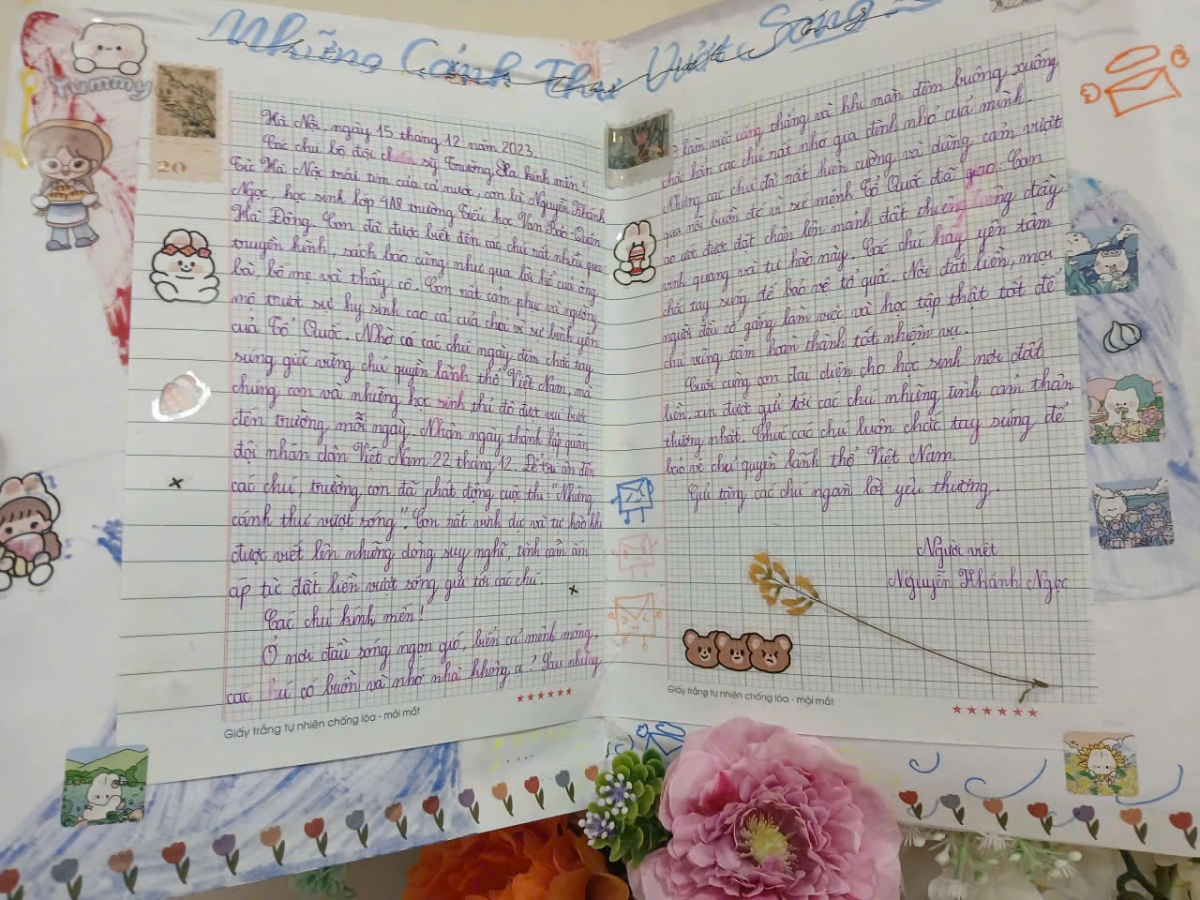 Những Cánh Thư Vượt Sóng
yummy
20
Hà Nội, ngày 15 tháng 12 năm 2023.
Các chú bộ đội chiến sỹ Trường Sa kính mến!
Từ Hà Nội trái tim của cả nước, con là Nguyễn Khánh
Ngọc, học sinh lớp 4A8 trường Tiểu học Văn Bảo-Quận
Hà Đông. Con đã được biết đến các chú rất nhiều qua
truyền hình, sách báo cũng như qua lời kể của ông
bà, bố mẹ và thầy cô. Con rất cảm phục và ngưỡng
mộ trướt sự hy sinh cao cả của chú vì sự bình yên
của Tổ Quốc. Nhờ có các chú ngày đêm chắc tay
súng giữ vững chủ quyền lãnh thổ Việt Nam, mà
chúng con và những học sinh thủ đô được vui bước
đến trường mỗi ngày. Nhân ngày thành lập quân
đội nhân dân Việt Nam 22 tháng 12. Để tri ân đến
các chú, trường con đã phát động cuộc thi "Những
cánh thư vượt sóng". Con rất vinh dự và tự hào khi
được viết lên những dòng suy nghĩ, tình cảm ấm
áp từ đất liền vượt sóng gửi tới các chú.
Các chú kính mến!
Ở nơi đầu sóng ngọn gió, biển cả mênh mông,
các chú có buồn và nhớ nhà không ạ? Sau những
Giấy trắng tự nhiên chống lóa - mỏi mắt
làm việc căng thẳng và khi màn đêm buông xuống
chắc hẳn các chú rất nhớ gia đình nhỏ của mình.
Nhưng các chú đã rất kiên cường và dũng cảm vượt
qua nỗi buồn để vì sứ mệnh Tổ Quốc đã giao. Con
ao ước được đặt chân lên mảnh đất thiêng liêng đầy
vinh quang và tự hào này. Các chú hãy yên tâm
chắc tay súng để bảo vệ tổ quốc. Nơi đất liền, mọi
người đều cố gắng làm việc và học tập thật tốt để
chú vững tâm hoàn thành tốt nhiệm vụ.
Cuối cùng con đại diện cho học sinh nơi đất
liền, xin được gửi tới các chú những tình cảm thân
thương nhất. Chúc các chú luôn chắc tay súng để
bảo vệ chủ quyền lãnh thổ Việt Nam.
Gửi tặng các chú ngàn lời yêu thương.
Người viết
Nguyễn Khánh Ngọc
Giấy trắng tự nhiên chống lóa - mỏi mắt